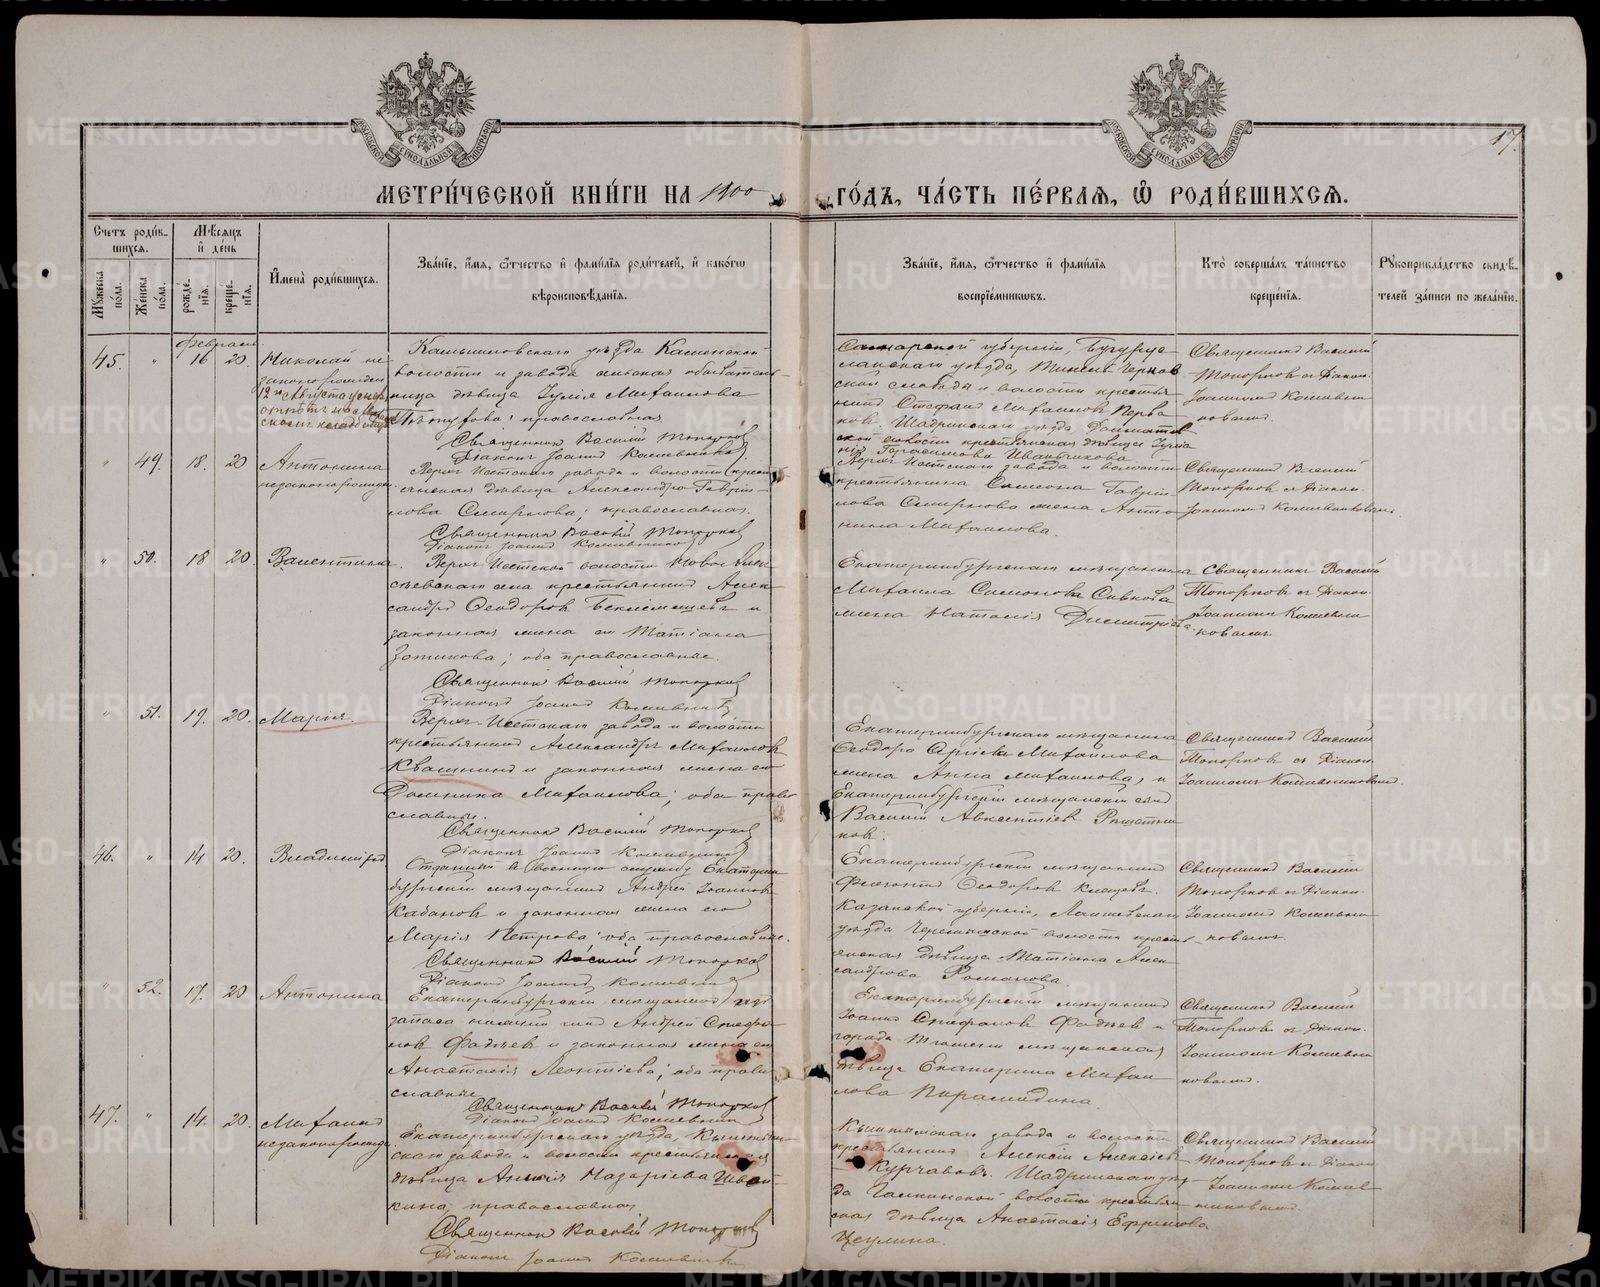 METRIKI.GASO-URAL.RU
МОСКОВСКОЙ СѴНОДАЛЬНОЙ ТИПОГРАФІИ
МОСКОВСКОЙ СѴНОДАЛЬНОЙ ТИПОГРАФІИ
17.
МЕТРИ́ЧЕСКОЙ КНИ́ГИ НА 1900
ГО́ДЪ, ЧА́СТЬ ПЕ́РВАЯ, Ѿ РОДИ́ВШИХСЯ.
Счетъ роди́в-
шихся.
Мѣсяцъ
и҆ де́нь
Мꙋжеска по́ла.
Же́нска по́ла.
рожде́нїя.
креще́нїя.
И҆мена̀ роди́вшихся.
Зва́нїе, и҆́мя, ѻ҆́тчество и҆ фами́лїя роди́телей, и҆ како́гѡ
вѣроисповѣ́данїя.
Зва́нїе, и҆́мя, ѻ҆́тчество и҆ фами́лїя
воспрїе́мникѡвъ.
Кто̀ соверша́лъ та́инство
креще́нїя.
Рꙋкоприкла́дство свидѣ́-
телей за́писи по жела́нїю.
Февраль
45. " 16 20. Николай не-
законорожден.
Камышловскаго уѣзда Каменской
волости и завода сельская обыватель-
ница дѣвица Юлія Михаилова
православная.
Священник Василій Топорков
Діакон Іоанн Кошевников
Самарской губерніи, Бугурус-
ланскаго уѣзда,
слободы и волости крестья-
нин Стефан Михаилов
ков, Шадринскаго уѣзда,
ской волости крестьянская дѣвица Юлія
Герасимова Иванчикова.
Священник Василій
Топорков с діакон.
Іоанном Кошевни-
ковым.
" 49. 18. 20 Антонина
незаконорожден.
Верх-Исетскаго завода и волости крест-
янская дѣвица Александра Гаврии-
лова Смирнова; православная.
Священник Василій Топорков
Діакон Іоанн Кошевников
Верх-Исетскаго завода и волости
крестьянина Симеона Гаврии-
лова Смирнова жена Анто-
нина Михаилова.
Священник Василій
Топорков с діакон.
Іоанном Кошевниковым.
" 50. 18 20. Валентина.
Верх-Исетской волости Ново-Алек-
сѣевскаго села крестьянин Алек-
сандр Ѳеодоров Беклемышев и
законная жена его Татіана
Зотикова; оба православные.
Священник Василій Топорков
Діакон Іоанн Кошевников
Екатеринбургскаго мѣщанина
Михаила Симонова Сивкова
жена Наталія Димитріева.
Священник Василій
Топорков с діакон.
Іоанном Кошевни-
ковым.
" 51. 19. 20. Марія.
Верх-Исетскаго завода и волости
крестьянин Александр Михаилов
Квашнин и законная жена его
Домника Михаилова; оба право-
славные.
Священник Василій Топорков
Діакон Іоанн Кошевников
Екатеринбургскаго мѣщанина
Ѳеодора Михаилова
жена Анна Михаилова, и
Екатеринбургскій мѣщанскій сын
Василій Авксентіев Решетни-
ков.
Священник Василій
Топорков с діакон.
Іоанном Кошевниковым.
46. " 14 20. Владимір
Отданный в военную службу Екатерин-
бургскій мѣщанин Андрей Іоаннов
Кабанов и законная жена его
Марія Петрова; оба православные.
Священник Василій Топорков
Діакон Іоанн Кошевников
Екатеринбургскій мѣщанин
Ѳеодоров Клещев.
Казанской губерніи, Лаишевскаго
уѣзда волости крест-
янская дѣвица Татіана Алек-
сандрова Романова.
Священник Василій
Топорков с діакон.
Іоанном Кошевни-
ковым.
" 52. 17. 20 Антонина
Екатеринбургскій мѣщанин из
запаса нижній чин Андрей Стефа-
нов Фадѣев и законная жена его
Анастасія Леонтіева; оба право-
славные.
Священник Василій Топорков
Діакон Іоанн Кошевников
Екатеринбургскій мѣщанин
Іоанн Стефанов Фадѣев и
города Тюмени мѣщанская
дѣвица Екатерина Михаи-
лова Пирамидина.
Священник Василій
Топорков с діакон.
Іоанном Кошевни-
ковым.
47. " 14 20. Михаил
незаконорожден.
Екатеринбургскаго уѣзда, Кыштым-
скаго завода и волости крестьянская
дѣвица Анисія Назаріева Швей-
кина; православная
Священник Василій Топорков
Діакон Іоанн Кошевников
Кыштымскаго завода и волости
крестьянин Алексій Алексіев
Курчавов. Шадринскаго уѣз-
да Галкинской волости крестьян-
ская дѣвица Анастасія Ефремова
Цеулина.
Священник Василій
Топорков с діакон.
Іоанном Кошев-
никовым.